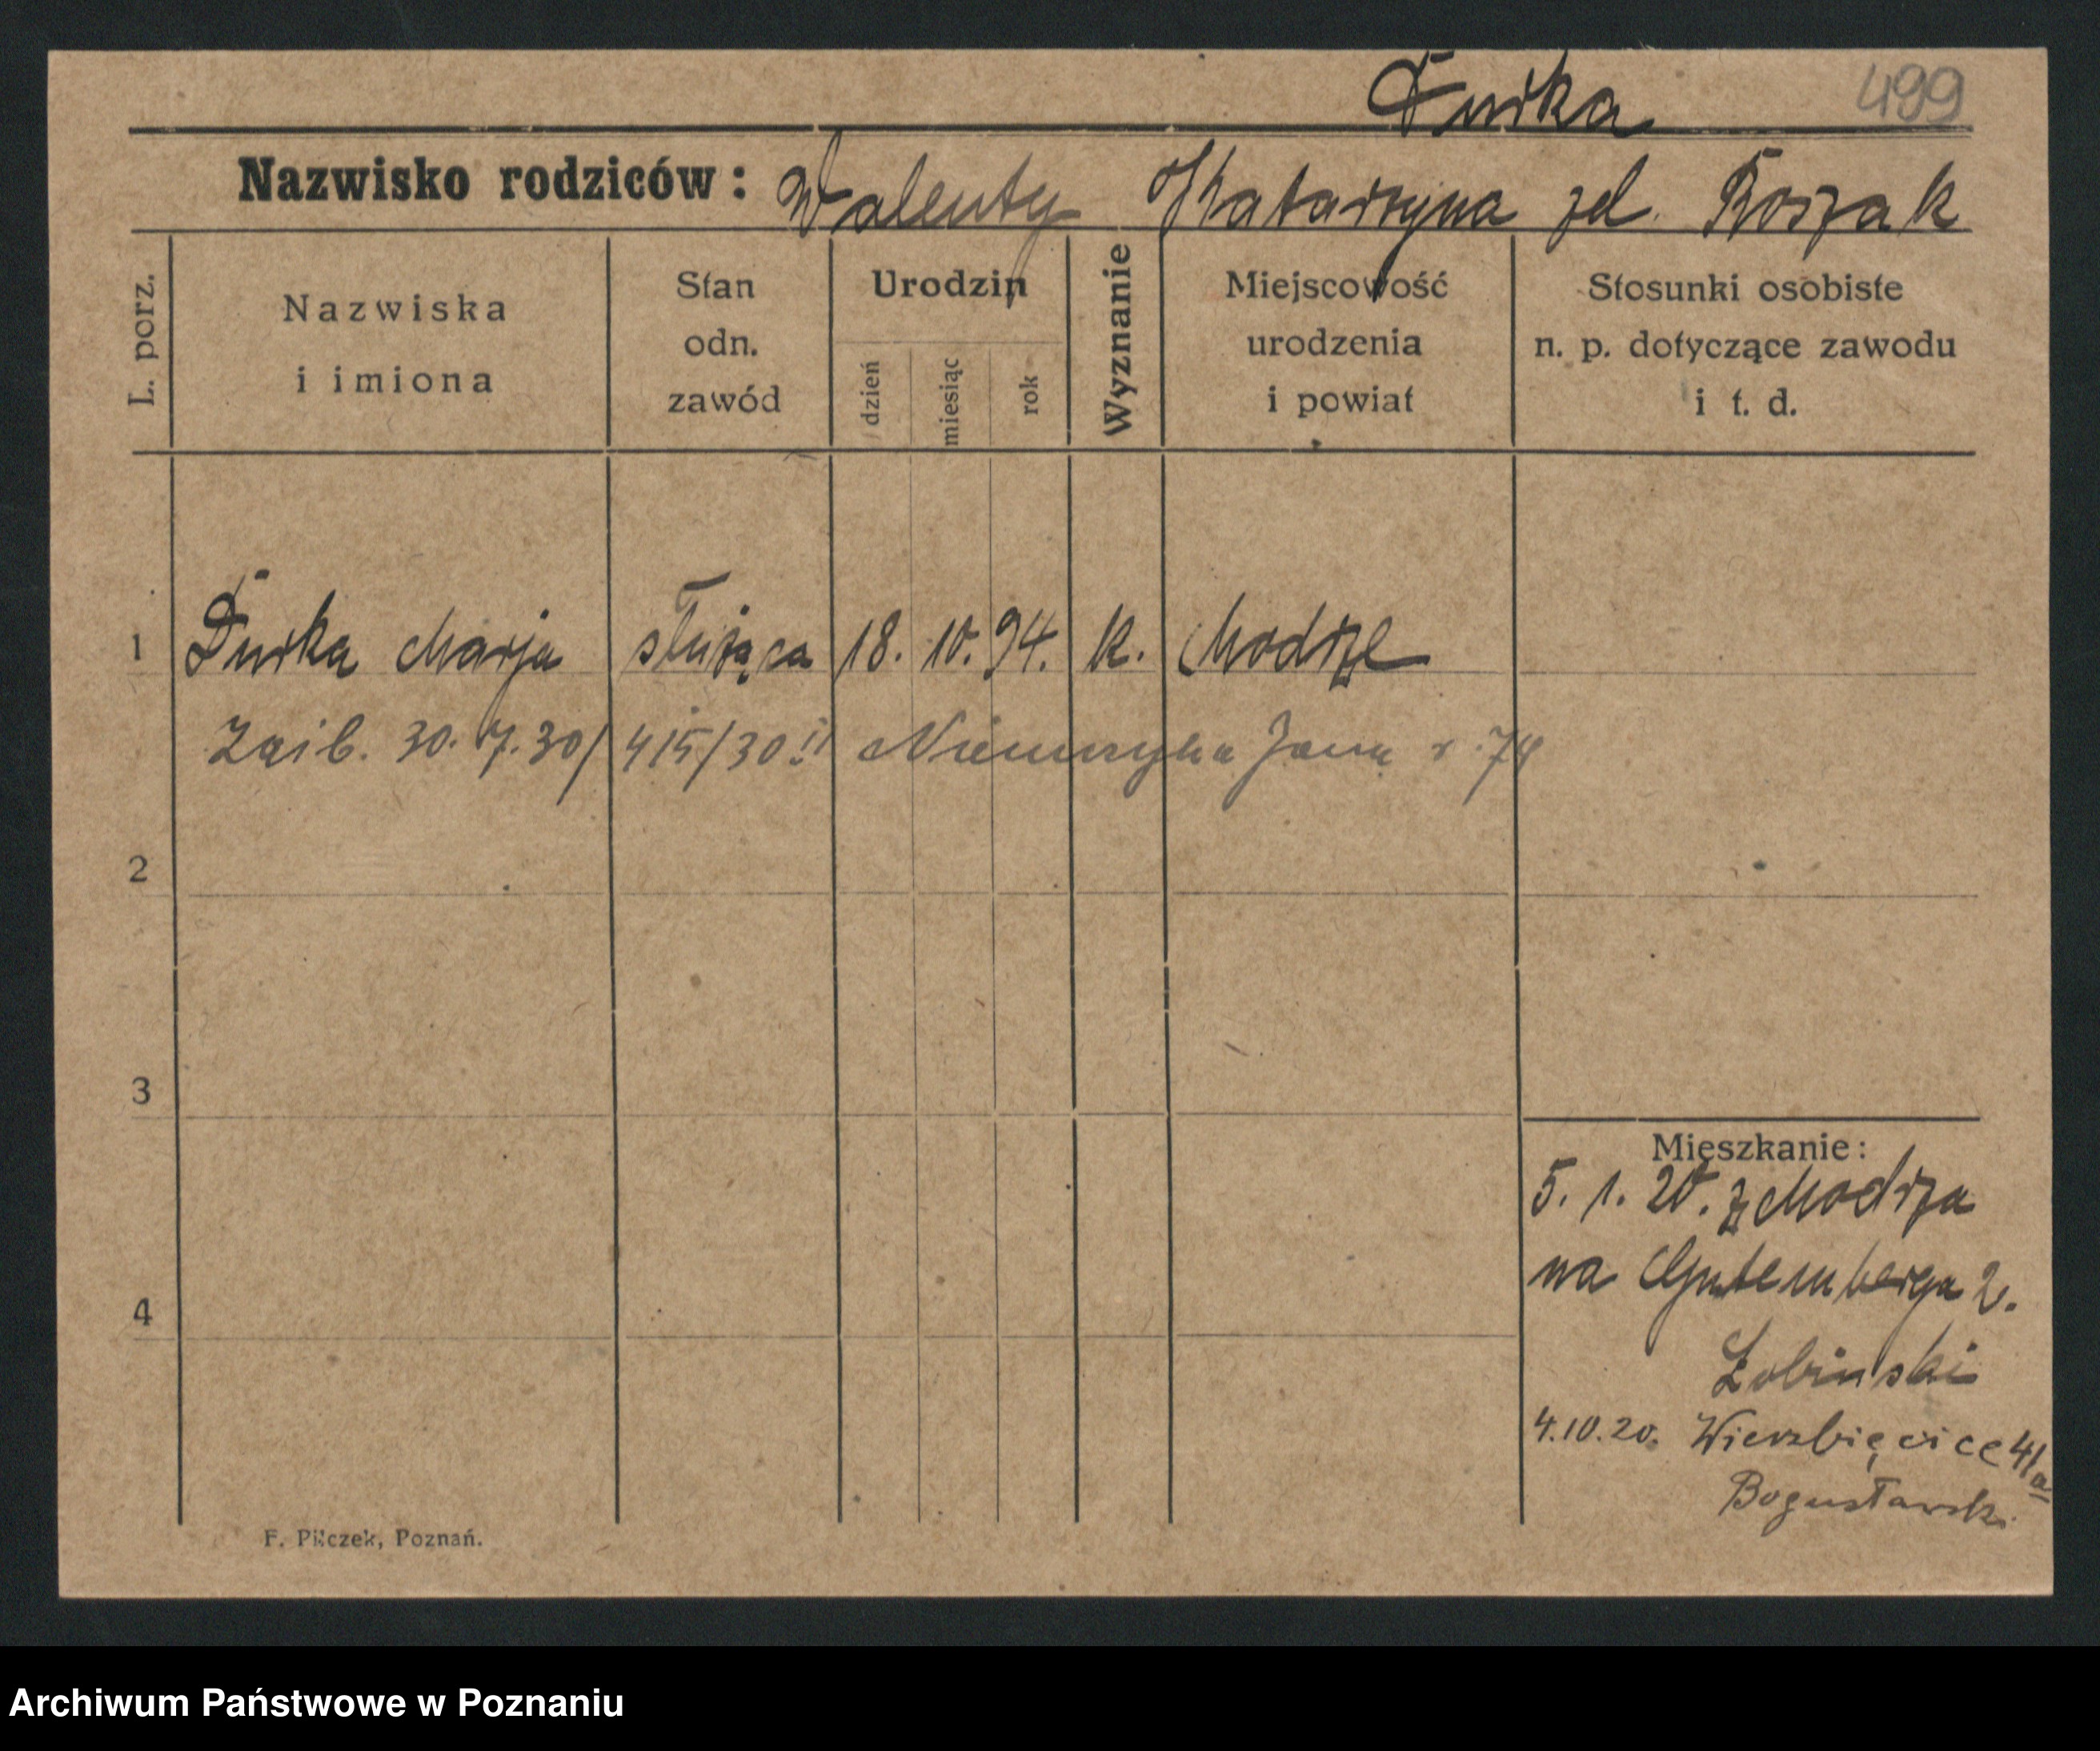 Durka 499
Nazwisko rodziców: Walenty Katarzyna zd. Roszak
L. porz.
Nazwiska
i imiona
Stan
odn.
zawód
Urodzin
dzień
miesiąc
rok
Wyznanie
Miejscowość
urodzenia
i powiat
Stosunki osobiste
n. p. dotyczące zawodu
i t. d.
1 Durka Marja służąca 18. 10. 94. k. Modrze
30. 7. 30/ 415/30
2
3
4
Mieszkanie:
5. 1. 20. z Modrza
na Gutemberga 2.
Łobinski
4.10.20. Wierzbięcice 41a
Bogusławski
F. Pilczek, Poznań.
Archiwum Państwowe w Poznaniu